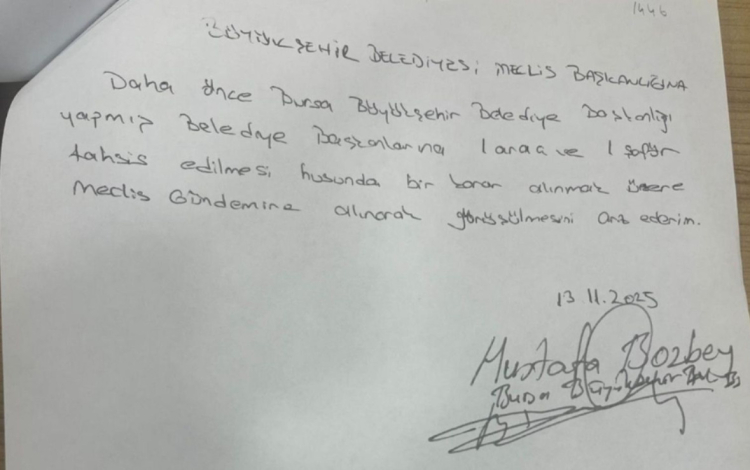 1446
BÜYÜKŞEHİR BELEDİYESİ MECLİS BAŞKANLIĞINA
Daha önce Bursa Büyükşehir Belediye Başkanlığı
yapmış Belediye Başkanlarına 1 araç ve 1 şoför
tahsis edilmesi husunda bir karar alınmak üzere
Meclis Gündemine alınarak görüşülmesini arz ederim.
13.11.2025
Mustafa Bozbey
Bursa Büyükşehir Bel. Bş